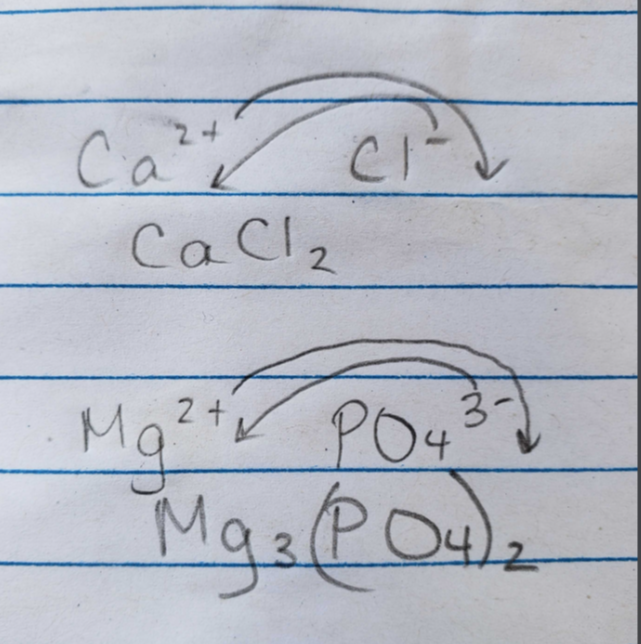 Ca²⁺ Cl⁻
CaCl₂
Mg²⁺ PO₄³⁻
Mg₃(PO₄)₂